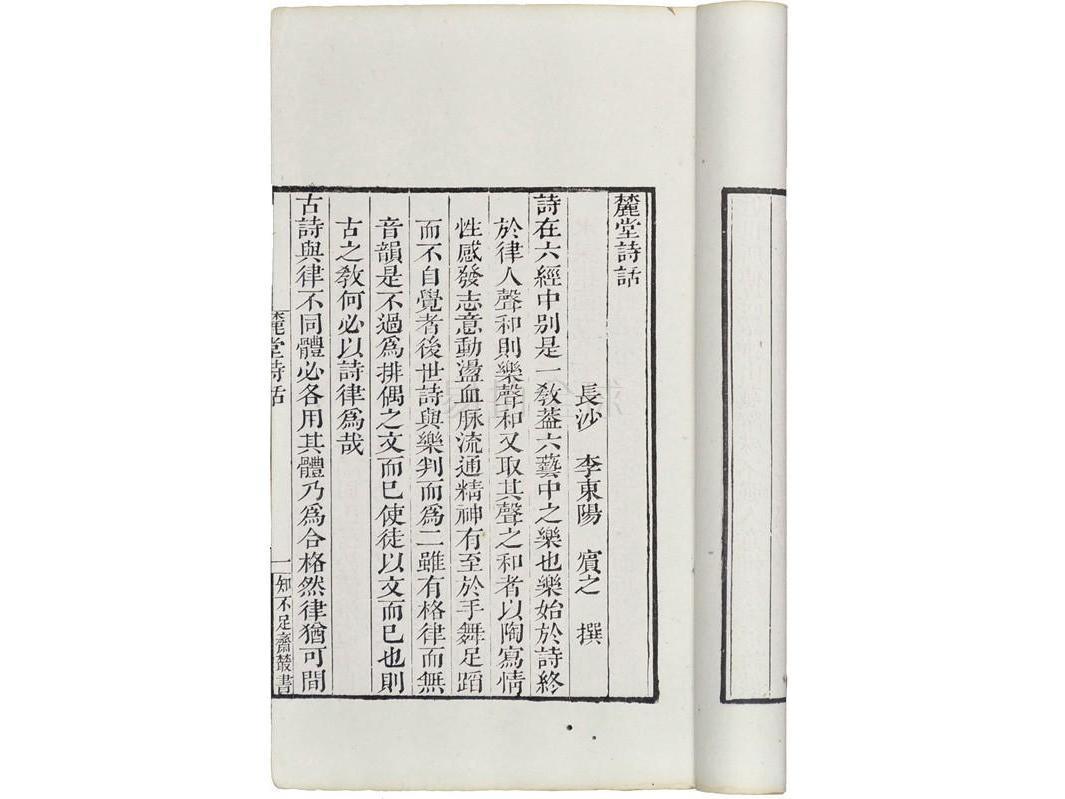 麓堂詩話
長沙 李東陽 賔之 撰
詩在六經中别是一敎葢六藝中之樂也樂始於詩終
於律人聲和則樂聲和又取其聲之和者以陶寫情
性感發志意動盪血脉流通精神有至於手舞足蹈
而不自覺者後世詩與樂判而爲二雖有格律而無
音韻是不過爲排偶之文而已使徒以文而已也則
古之敎何必以詩律爲哉
古詩與律不同體必各用其體乃爲合格然律猶可間
麓堂詩話
一
知不足齋叢書